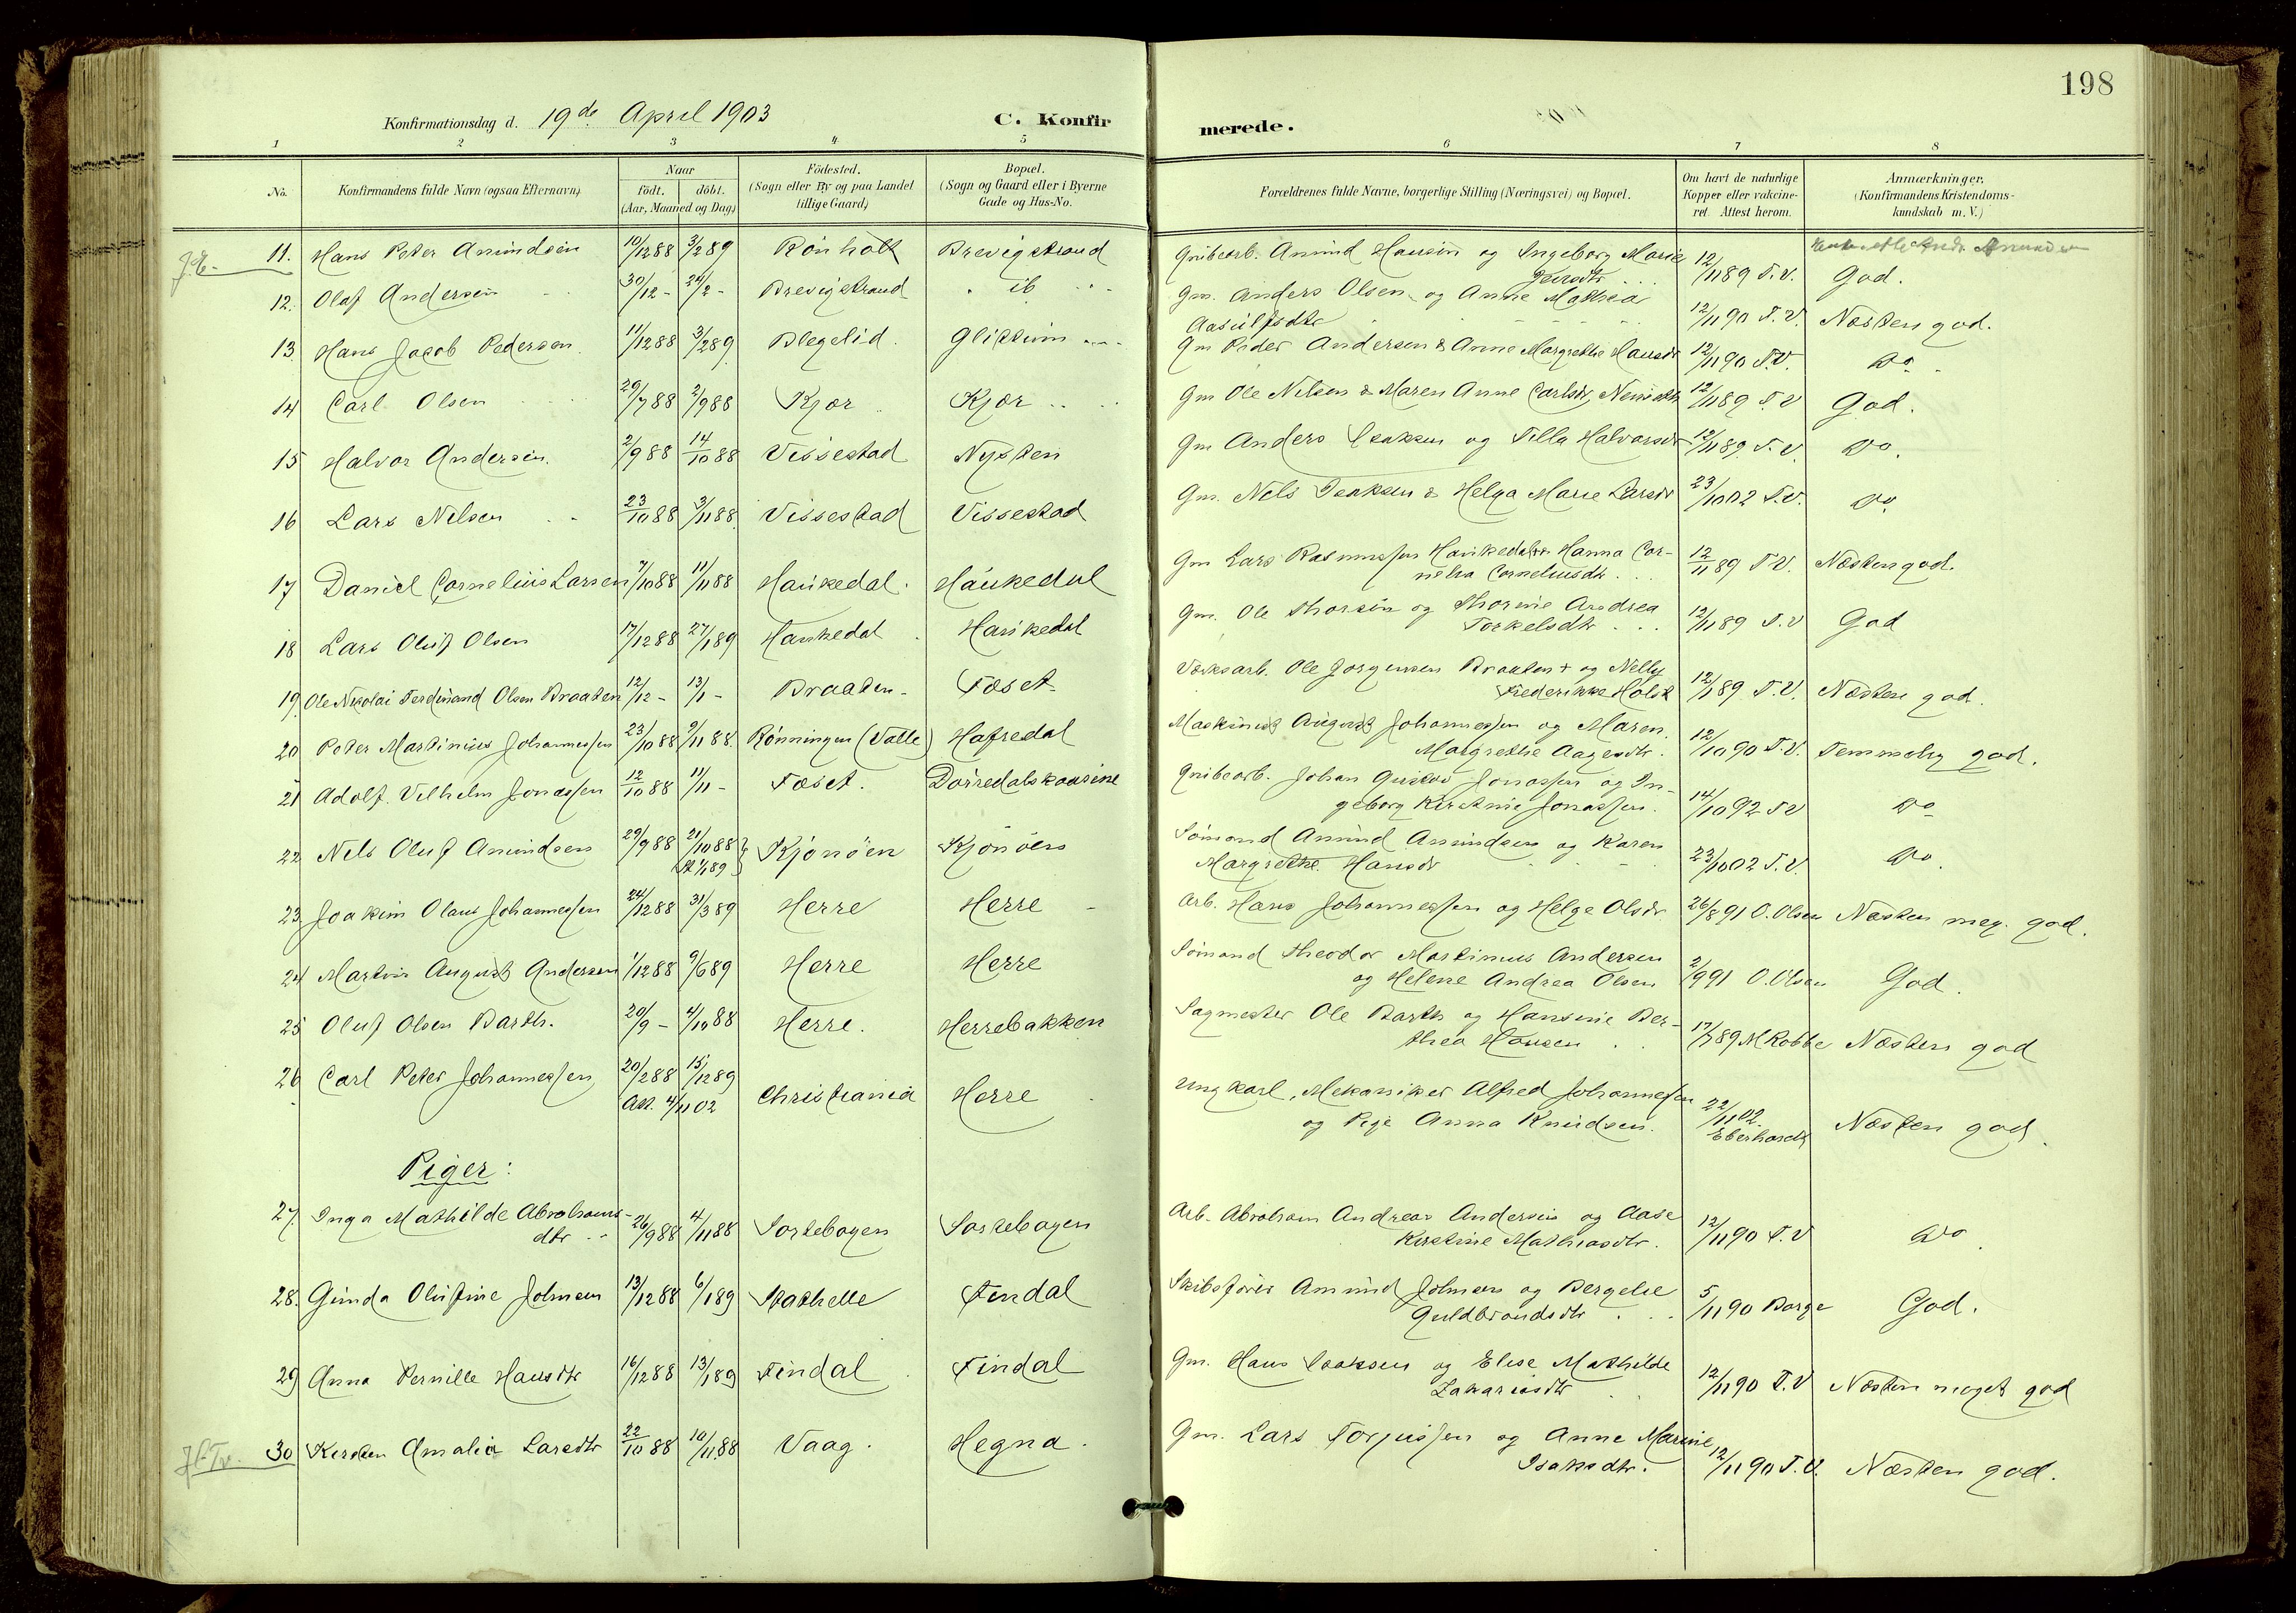 198
Konfirmationsdag d. 19de April 1903
C. Konfir
merede.
1 2 3 4 5 6 7 8
No. Konfirmandens fulde Navn (ogsaa Efternavn). Naar födt. döbt. (Aar, Maaned og Dag) Födested. (Sogn eller By og paa Landet tillige Gaard) Bopæl. (Sogn og Gaard eller i Byerne Gade og Hus-No. Forældrenes fulde Navne, borgerlige Stilling (Næringsvei) og Bopæl. Om havt de naturlige Kopper eller vakcineret. Attest herom. Anmærkninger, (Konfirmandens Kristendomskundskab m. V.)
11. Hans Peter Amundsen 10/12 88 3/2 89 Rönholt Brevigstrand Grubearb. Amund Hansen og Ingeborg Marie
12/11 89 T.V. God.
12. Olaf Andersen 30/12 - 24/2 - Brevigstrand ib Gm. Anders Olsen og Anne Mathea
Aasulfsdtr 12/11 90 T.V. Næsten god.
13. Hans Jacob Pedersen 11/12 88 3/2 89 Blegelid Glittum Gm Peder Andersen & Anne Margrethe Hansdr 12/11 90 T.V. Do
14 Carl Olsen 29/7 88 2/9 88 Kjær Kjær Gm Ole Nilsen & Maren Anne Carlsdr, 12/11 89 T.V God.
15 Halvor Andersen. 2/9 88 14/10 88 Vissestad Nysten Gm Anders Isaksen og Tilla Halvorsdr 12/11 89. T.V. Do.
16 Lars Nilsen 23/10 88 3/11 88 Vissestad Vissestad Gm. Nils Isaksen & Helga Marie Larsdr 23/10 02 T.V. Do
17 Daniel Cornelius Larsen 7/10 88 11/11 88 Haukedal Haukedal Gm Lars Rasmussen Haukedal Hanna Cor-
nelia Corneliusdtr. 12/11 89 T.V. Næsten god.
18 Lars Oluf Olsen 17/12 88 27/1 89 Haukedal Haukedal Gm. Ole Thorsen og Thorine Andrea
Torkelsdtr 12/11 89 T.V God
19. Ole Nikolai Ferdinand Olsen Braaten 12/12 - 13/1 - Braaten Fæset Værksarb. Ole Jorgensen Braaten + og Nelly
Frederikke Holst 12/11 89 T.V. Næsten god.
20 Peter Martinius Johannessen 23/10 88 9/11 88. Rönningen (Valle) Hafredal Maskinist August Johannessen og Maren
Margrethe Aagesdtr. 12/10 90 T.V. Temmelig god.
21 Adolf Vilhelm Jonassen 12/10 88 11/11 - Fæset. Dörredalskaasine Grubearb. Johan Gustav Jonassen og In-
geborg Kirstine Jonassen. 14/10 92 T.V Do
22 Nils Oluf Amundsen 29/9 88 21/10 88 Kjönöen Kjönöen Sömand Amund Amundsen og Karen
Margrethe Hansdr 23/10 02 T.V. Do.
23 Joakim Olaus Johannessen 24/12 88 31/3 89 Herre Herre Arb. Hans Johannessen og Helge Olsdr. 26/8 91 O. Olsen Næsten meg. god.
24 Martin August Andersen 1/12 88 9/6 89 Herre Herre Sömand Theodor Martinius Andersen
og Helene Andrea Olsen 2/9 91 O. Olsen God.
25 Oluf Olsen Barth. 20/9 - 4/10 88 Herre. Herrebakken Sagmester Ole Barth og Hansine Ber-
thea Hansen 17/7 89 M Kobbe Næsten god
26 Carl Peter Johannessen 20/2 88 15/12 89
Att. 4/11 02 Christiania Herre Ungkarl, Mekaniker Alfred Johannessen
og Pige Anna Knudsen. 22/11 02. Eberhardt Næsten god.
Piger:
27. Inga Mathilde Abrahams-
dtr 26/9 88 4/11 88 Sortebogen Sortebogen Arb. Abraham Andreas Andersen og Aase
Kirstine Mathiasdtr. 12/11 90 T.V Do.
28. Gunda Olufine Johnsen 13/12 88 6/1 89 Stathelle Findal Skibsförer Amund Johnsen og Bergele
Guldbrandsdtr 5/11 90 Borge God.
29 Anna Pernille Hansdtr 16/12 88 13/1 89 Findal Findal Gm. Hans Isaksen og Elise Mathilde
Zakariasdtr 12/11 90 T.V Næsten meget god
30 Kirsten Amalia Larsdtr 22/10 88 10/11 88 Vaag. Hegna. Gm. Lars Torjussen og Anne Marine
Isaksdtr. 12/11 90 T.V. Næsten god.